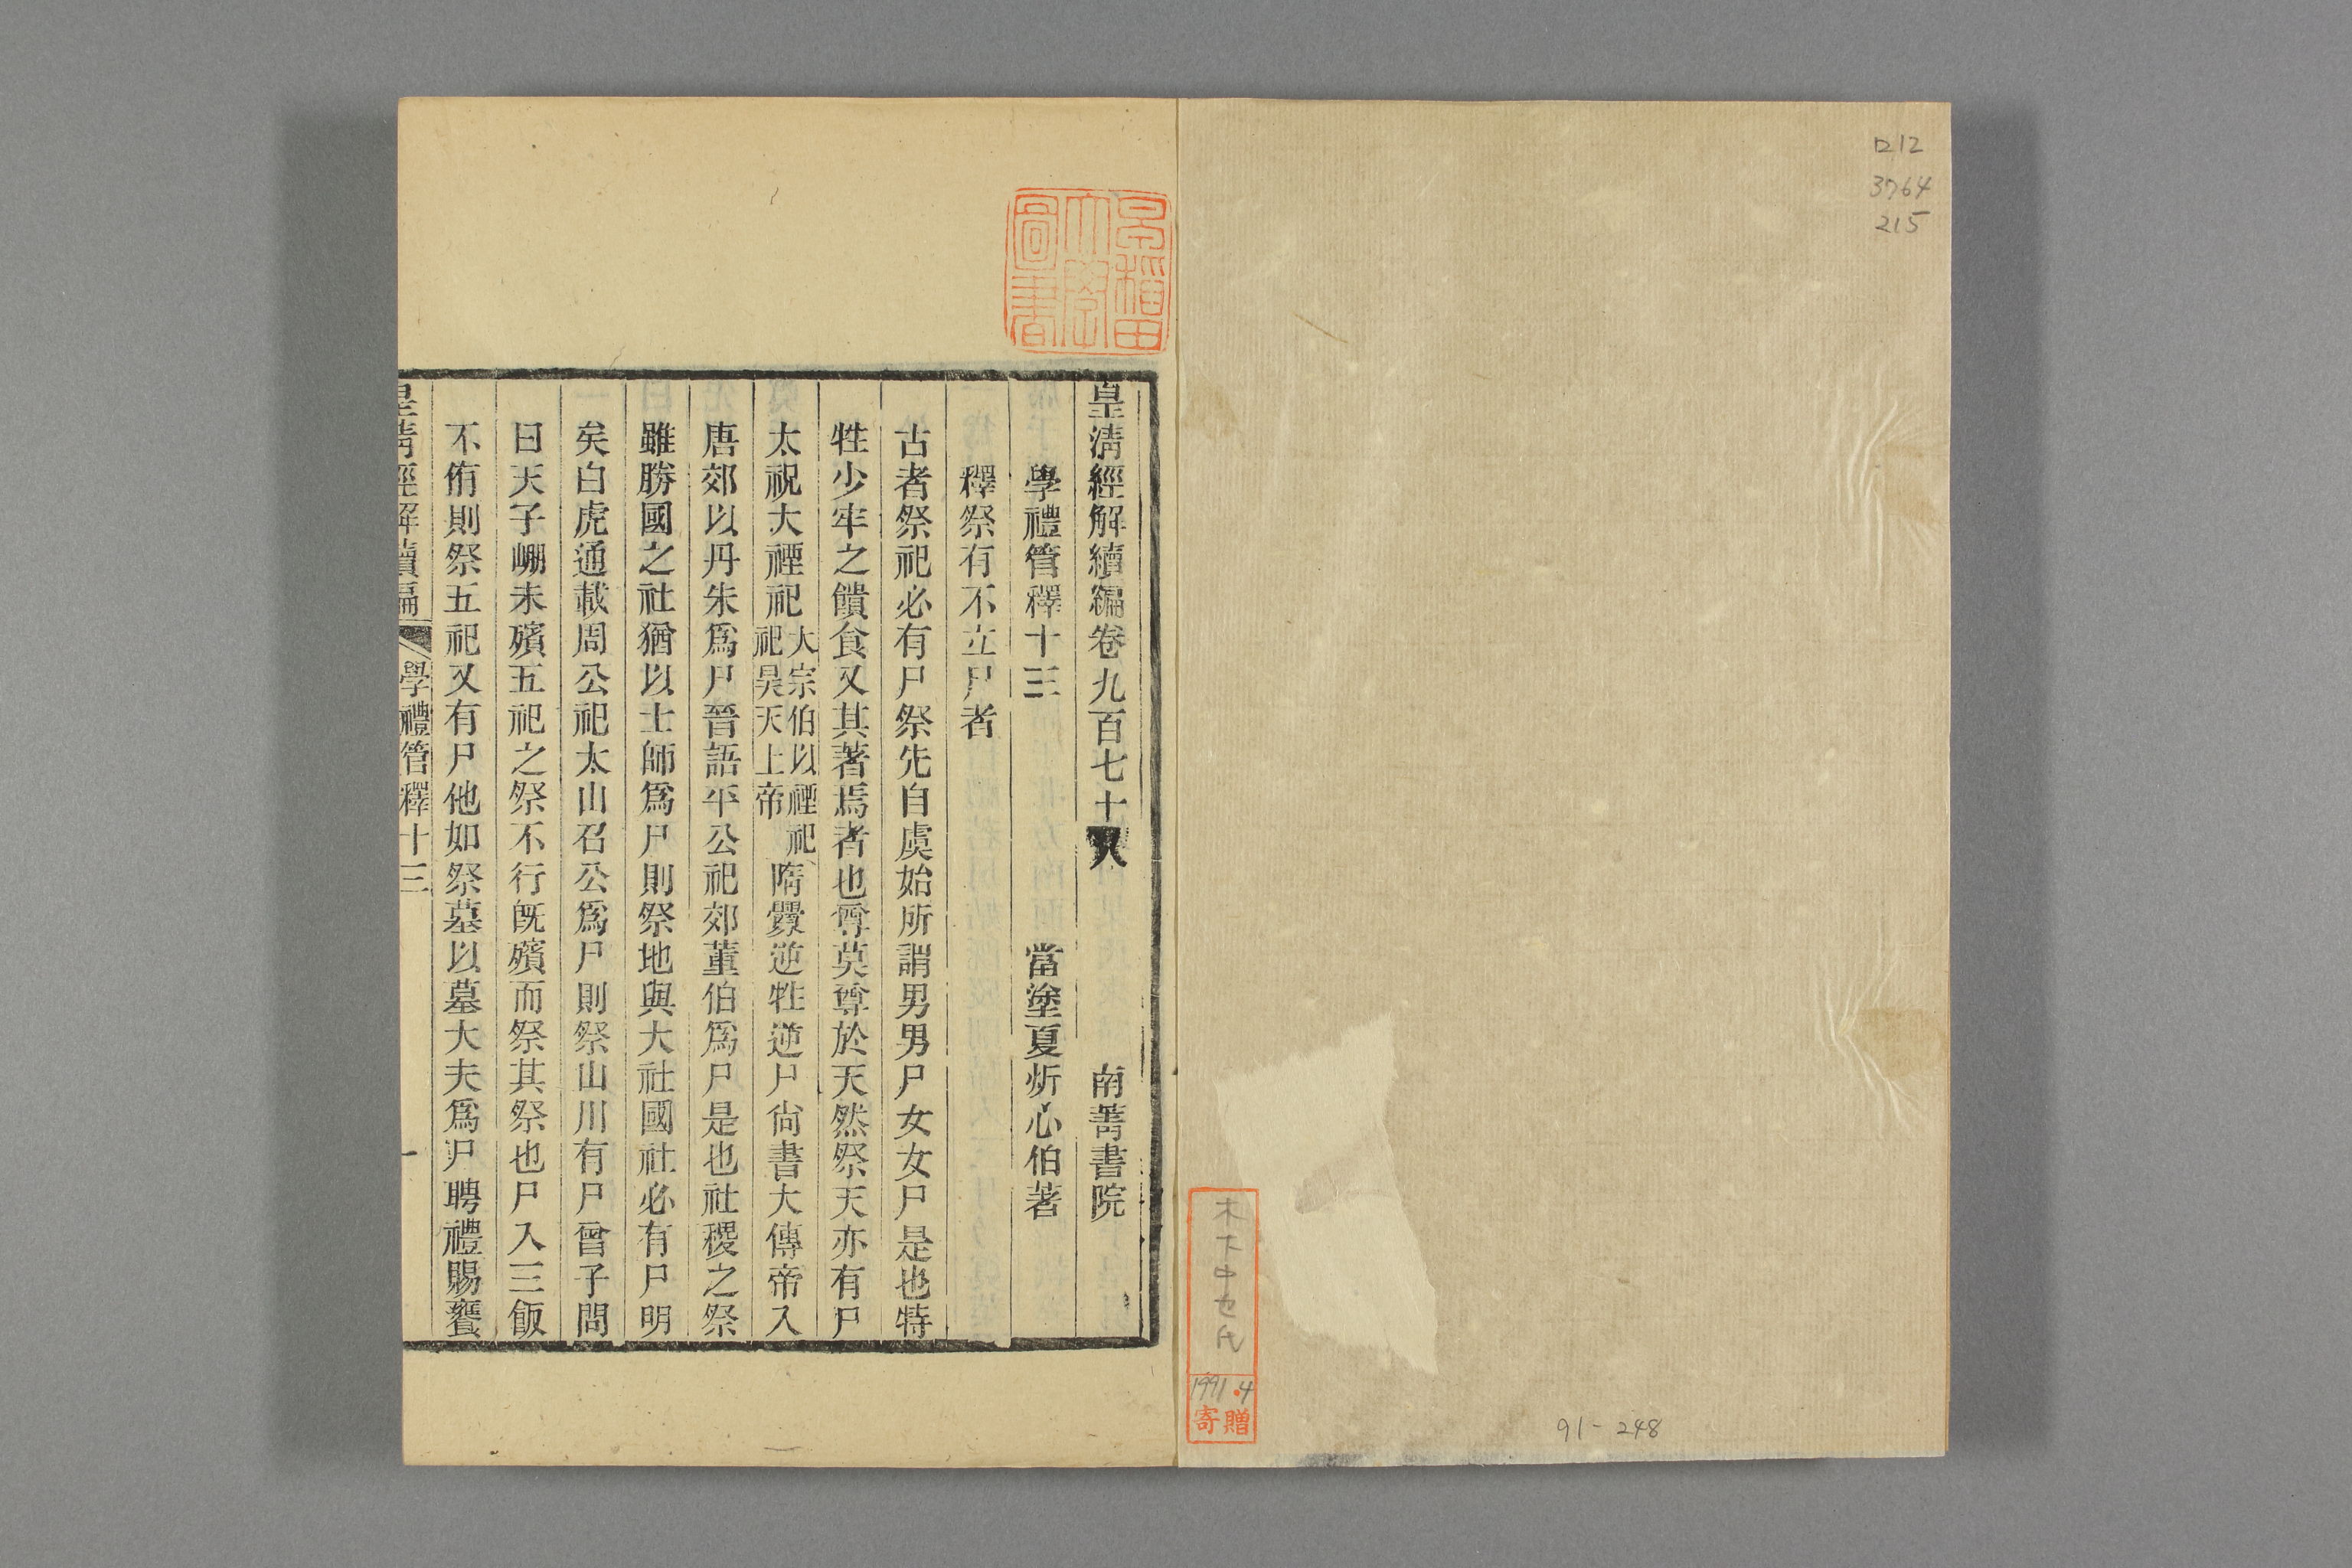 ロ12
3764
215
木下中也氏
1991.4
寄贈
91-248
早稲田大學圖書
皇淸經解續編卷九百七十八 南菁書院
學禮管釋十三 當塗夏炘心伯著
釋祭有不立尸者
古者祭祀必有尸祭先自虞始所謂男男尸女女尸是也特
牲少牢之饋食又其著焉者也尊莫尊於天然祭天亦有尸
太祝大禋祀大宗伯以禋祀祀昊天上帝隋釁逆牲逆尸尙書大傳帝入
唐郊以丹朱爲尸晉語平公祀郊董伯爲尸是也社稷之祭
雖勝國之社猶以士師爲尸則祭地與大社國社必有尸明
矣白虎通載周公祀太山召公爲尸則祭山川有尸曾子問
曰天子崩未殯五祀之祭不行旣殯而祭其祭也尸入三飯
不侑則祭五祀又有尸他如祭墓以墓大夫爲尸聘禮賜饔
皇淸經解續編 學禮管釋十三 一